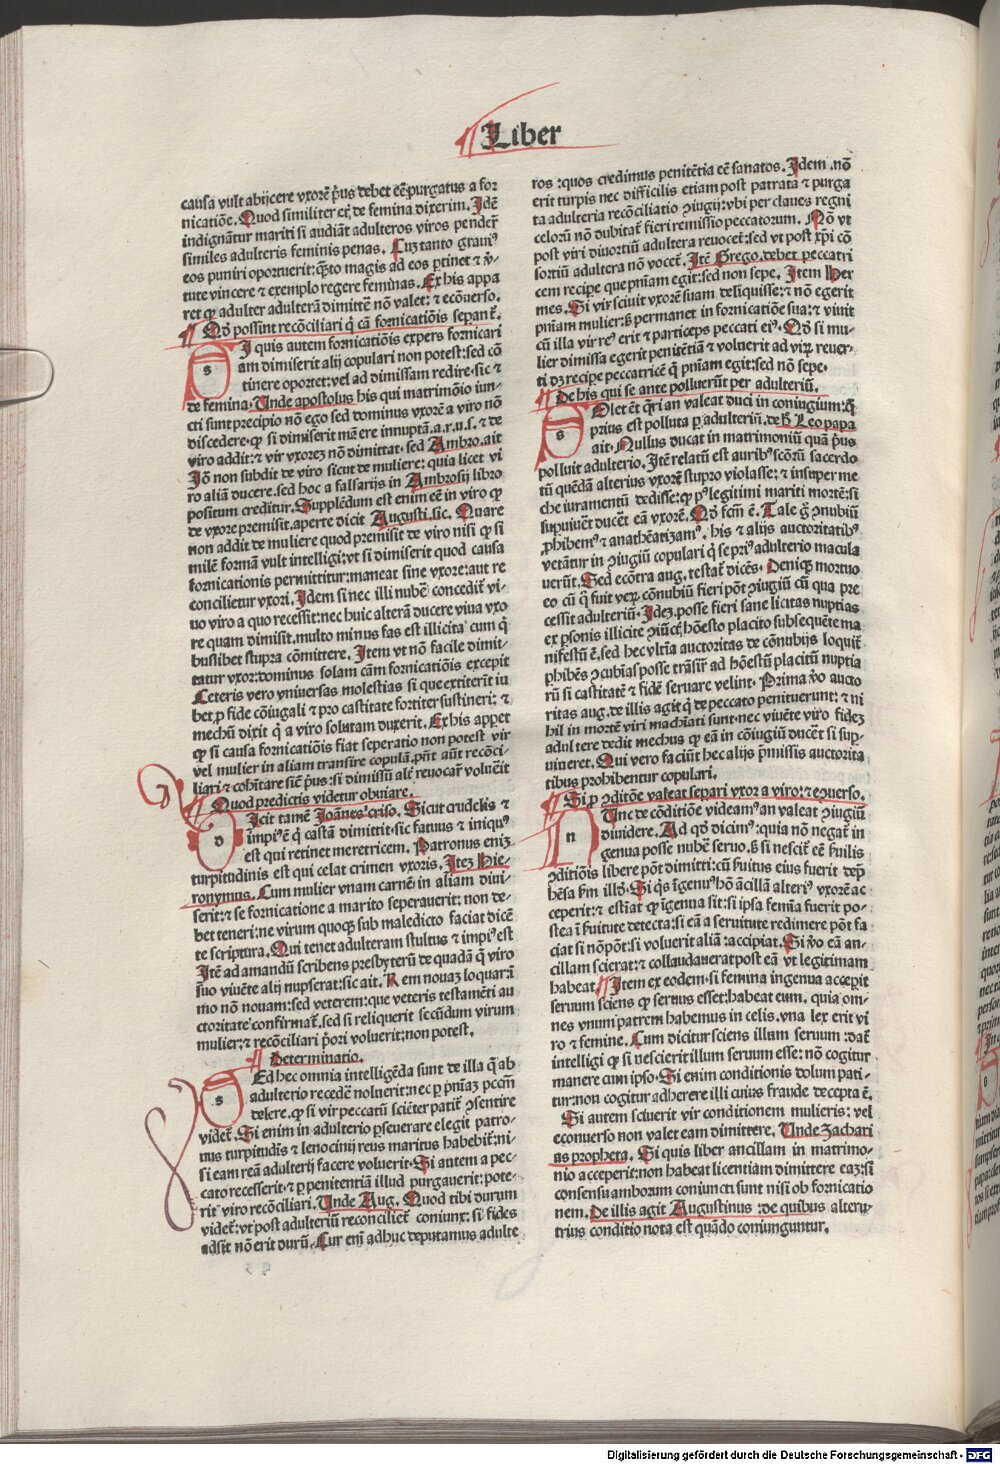 Liber
causa vult abijcere vxorē p̄us debet eē purgatus a for
nicatiōe. Quod similiter et̄ de femina dixerim. Idē
indignātur mariti si audiāt adulteros viros pender̄
similes adulteris feminis penas. Cuz tanto graui⁹
eos puniri oportuerit: q̄to magis ad eos ꝑtinet ⁊ v̓-
tute vincere ⁊ exemplo regere feminas. Ex his appa
ret ꝙ adulter adulterā dimitte᷑ nō valet: ⁊ ecōuerso.
Qď possint recōciliari q̇ cā fornicatiōis seꝑant᷑.
SI quis autem fornicatiōis expers fornicari
am dimiserit alij copulari non potest: sed cō
tinere oportet: vel ad dimissam redire. sic ⁊
de femina. Unde apostolus his qui matrimōio iun-
cti sunt precipio nō ego sed dominus vxorē a viro nō
discedere. ꝙ si dimiserit māere innuptā. a. r. u. s. ⁊ de
viro addit: ⁊ vir vxorez nō dimittat. sed Ambro. ait
Iō non subdit de viro sicut de muliere: quia licet vi
ro aliā ducere. sed hoc a falsarijs in Ambrosij libro
positum creditur. Supplēdum est enim eē in viro ꝙ
de vxore premisit. aperte dicit Augusti. sic. Quare
non addit de muliere quod premisit de viro nisi ꝙ si
milē formā vult intelligi: vt si dimiserit quod causa
fornicationis permittitur: maneat sine vxore: aut re
concilietur vxori. Idem si nec illi nubē concedit᷑ vi-
uo viro a quo recessit: nec huic alterā ducere viua vxo
re quam dimisit. multo minus fas est illicita cum q̇
buslibet stupra cōmittere. Item vt nō facile dimit-
tatur vxor: dominus solam cām fornicatiōis excepit
Ceteris vero vniuersas molestias si que extiterīt iu
bet ꝓ fide cōiugali ⁊ pro castitate fortiter sustineri: ⁊
mechū dixit q̇ a viro solutam duxerit. Ex his apꝑet
ꝙ si causa fornicatiōis fiat seperatio non potest vir
vel mulier in aliam transire copulā. pn̄t aūt recōci-
liari ⁊ cohītare sic̄ p̄us: si dimissū alt᷑ reuocar̄ voluerit
Quod predictis videtur obuiare.
DIcit tamē Joānes criso. Sicut crudelis ⁊
impi⁹ ē q̇ castā dimittit. sic fatuus ⁊ iniqu⁹
est qui retinet meretricem. Patronus eniz
turpitudinis est qui celat crimen vxoris. Itez Hie-
ronymus. Cum mulier vnam carnē in aliam diui-
serit: ⁊ se fornicatione a marito seperauerit: non de-
bet teneri: ne virum quoqꝫ sub maledicto faciat dicē
te scriptura. Qui tenet adulteram stultus ⁊ impi⁹ est
Itē ad amandū scribens presbyterū de quadā q̄ viro
suo viuēte alij nupserat: sic ait. Rem nouaz loquar: ī
mo nō nouam: sed veterem: que veteris testamēti au
ctoritate confirmat᷑. sed si reliquerit secūdum virum
mulier: ⁊ recōciliari p̄ori voluerit: non potest.
Determinatio.
SEd hec omnia intelligēda sunt de illa q̄ ab
adulterio recedē noluerit: nec ꝑ pn̄iaz pccm̄
delere. ꝙ si vir peccatū sciēter patit᷑ ꝯsentire
videt᷑. Si enim in adulterio ꝑseuerare elegit patro-
nus turpitudis ⁊ lenocinij reus maritus habebit᷑: ni-
si eam reā adulterij facere voluerit. Si autem a pec-
cato recesserit. ⁊ ꝑ penitentiā illud purgauerit: pote-
rit viro recōciliari. Unde Aug. Quod tibi durum
videt᷑: vt post adulteriū reconciliet᷑ coniunx: si fides
adsit nō erit durū. Cur eni᷑ adhuc deputamus adulte
ros: quos credimus penitētia eē sanatos. Idem. nō
erit turpis nec difficilis etiam post patrata ⁊ purga
ta adulteria recōciliatio ꝯiugij: vbi per claues regni
celorū nō dubitat᷑ fieri remissio peccatorum. Nō vt
post viri diuortiū adultera reuocet᷑: sed vt post xp̄i cō
sortiū adultera nō vocet᷑. Itē Grego. debet peccatri
cem recipe que pn̄iam egit: sed non sepe. Item Her
mes. Si vir sciuit vxorē suam deliquisse: ⁊ nō egerit
pn̄iam mulier: s̄ permanet in fornicatiōe sua: ⁊ viuit
cū illa vir re⁹ erit ⁊ particeps peccati ei⁹. Qď si mu-
lier dimissa egerit penitētiā ⁊ voluerit ad virꝫ reuer-
ti dz recipe peccatricē q̄ pn̄iam egit: sed nō sepe.
De his qui se ante polluerūt per adulteriū.
SOlet ēt q̄ri an valeat duci in coniugium: q̄
prius est polluta ꝑ adulteriū. de h̄ Leo papa
ait. Nullus ducat in matrimoniū quā p̄us
polluit adulterio. Itē relatū est aurib⁹ scōrū sacerdo
tū quēdā alterius vxorē stupro violasse: ⁊ insuper me
che iuramentū dedisse: ꝙ p⁹ legitimi mariti mortē: si
supuiuēt ducēt eā vxorē. Qď fcm̄ ē. Tale g᷑ ꝯnubiū
ꝓhibem⁹ ⁊ anathēatizam⁹. his ⁊ alijs auctoritatib⁹
vetātur in ꝯiugiū copulari q̇ se pri⁹ adulterio macula
uerūt. Sed ecōtra aug. testat᷑ dicēs. Deniqꝫ mortuo
eo cū q̇ fuit verꝫ cōnubiū fieri pōt ꝯiugiū cū qua pre
cessit adulteriū. Idez. posse fieri sane licitas nuptias
ex ꝑsonis illicite ꝯiūct᷑. hōesto placito subsequēte ma
nifestū ē. sed hec vltīa auctoritas de cōnubijs loquit᷑
ꝓhibēs ꝯcubīas posse trāsir̄ ad hōestū placitū nuptia
rū si castitatē ⁊ fidē seruare velint. Prima v̓o aucto
ritas aug. de illis agit q̇ de peccato penituerunt: ⁊ ni
hil in mortē viri machīati sunt. nec viuēte viro fidez
adultere dedit mechus ꝙ eā in cōiugiū ducet᷑ si sup-
uineret. Qui vero faciūt hec alijs p̄missis auctorita
tibus prohibentur copulari.
Si ꝓ ꝯditōe valeat separi vxor a viro: ⁊ ecuerso.
NUnc de cōditiōe videam⁹ an valeat ꝯiugiū
diuidere. Ad qď dicim⁹: quia nō negat᷑ in
genua posse nubē seruo. s̄ si nescit᷑ eē s̓uilis
ꝯditiōis libere pōt dimitti: cū s̓uitus eius fuerit dep̄
hēsa s̄m illď. Si q̇s īgenu⁹ hō ācillā alteri⁹ vxorē ac
ceperit: ⁊ estiāt ꝙ īgenua sit: si ipsa femīa fuerit po-
stea ī s̓uitute detecta: si eā a seruitute redimere pōt fa
ciat si nō pōt: si voluerit aliā accipiat. Si v̓o eā an-
cillam scierat: ⁊ collaudauerat post eā vt legitimam
habeat. Item ex eodem. si femina ingenua acceperit
seruum sciens ꝙ seruus esset: habeat eum. quia om-
nes vnum patrem habemus in celis. vna lex erit vi
ro ⁊ femine. Cum dicitur sciens illam seruum: dat᷑
intelligi ꝙ si nescierit illum seruum esse: nō cogitur
manere cum ipso. Si enim conditionis dolum pati-
tur: non cogitur adherere illi cuius fraude decepta ē.
Si autem scĩuerit vir conditionem mulieris: vel
econuerso non valet eam dimittere. Unde Zachari
as propheta. Si quis liber ancillam in matrimo-
nio acceperit: non habeat licentiam dimittere eaz: si
consensu amborum coniuncti sunt nisi ob fornicatio
nem. De illis agit Augustinus: de quibus alteru
trius conditio nota est quādo coniunguntur.
Digitalisierung gefördert durch die Deutsche Forschungsgemeinschaft - DFG